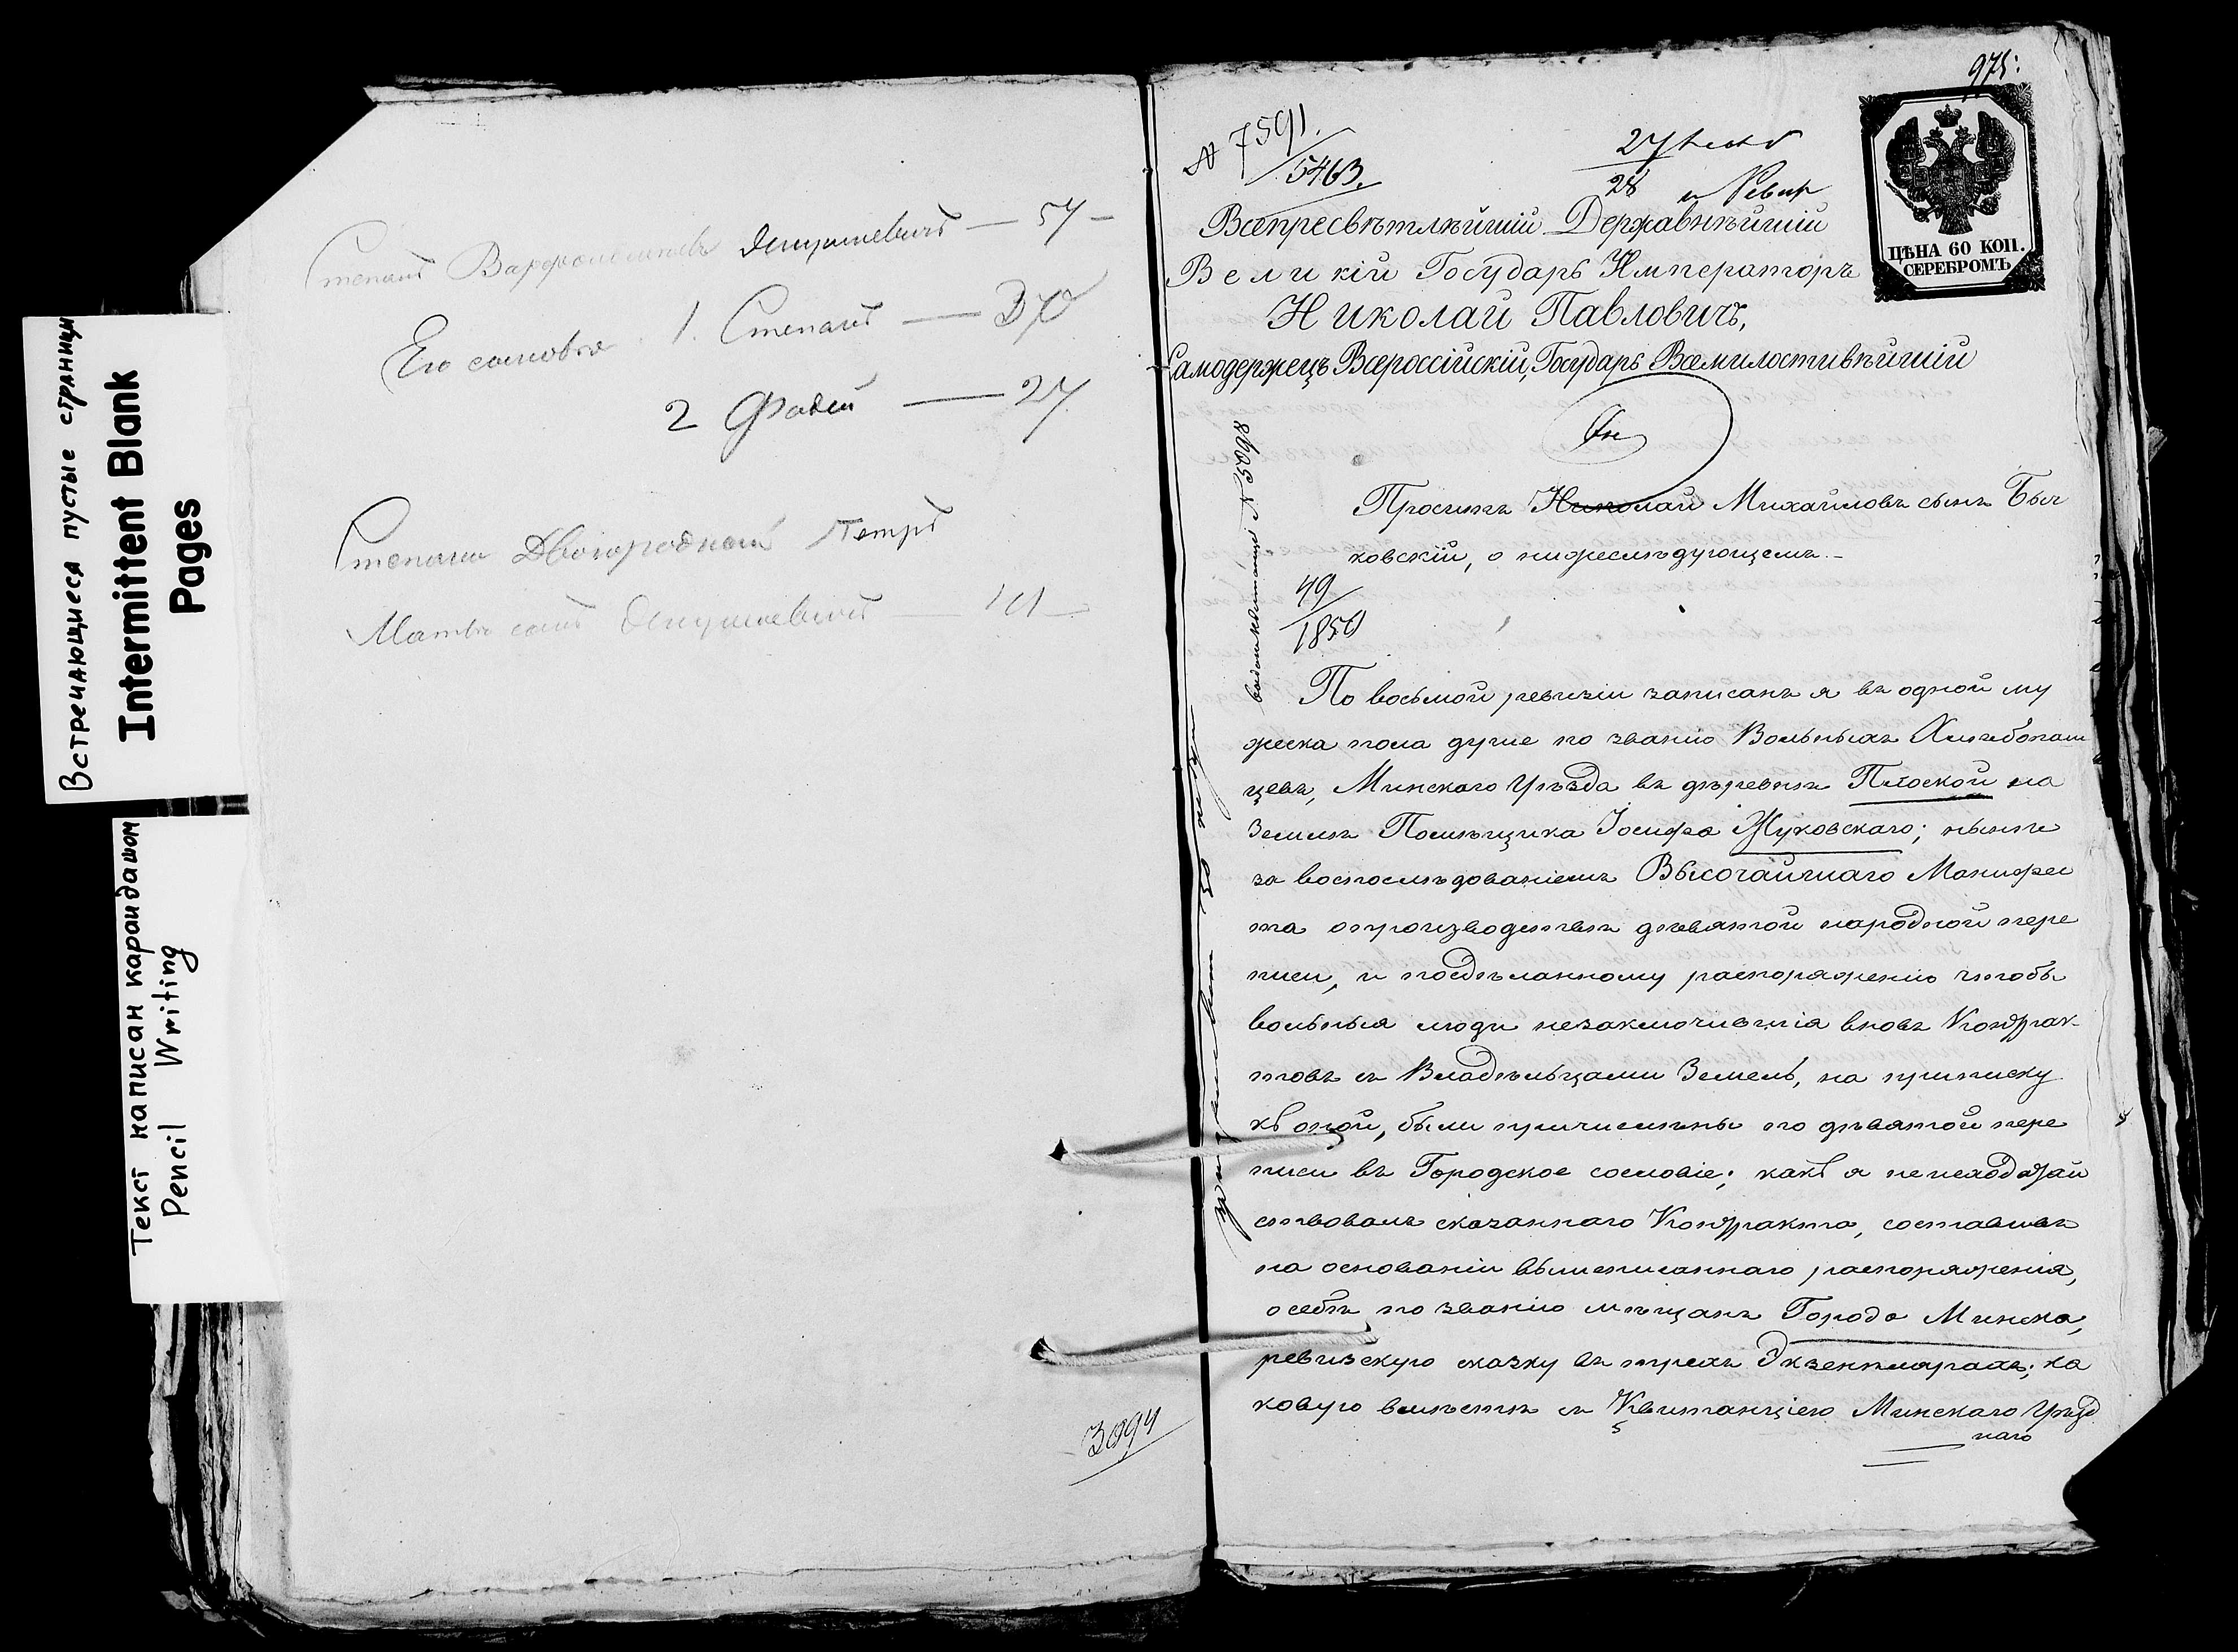 Встречающиеся пустые страницы
Intermittent Blank
Pages
Текст написан карандашом
Pencil Writing
Степанъ Варфоломеевъ — 57 —
Его сыновья 1. Степанъ — 30
2 Фадей — 27
Степана Двоюродный Петръ
3094
975:
№ 7591.
5463.
27
28
ЦѢНА 60 КОП.
СЕРЕБРОМЪ
Всепресвѣтлѣйшій Державнѣйшій
Великій Государь Императоръ
Николай Павловичъ,
Самодержецъ Всероссійскій, Государь Всемилостивѣйшій
№ 5098
Проситъ Николай Михайловъ сынъ Быч
ковскій, о нижеслѣдующемъ. –
49
1850
По восьмой ревизіи записанъ я въ одной му
жеска пола душе по званію Вольныхъ Хлѣбопаш
цевъ, Минскаго Уѣзда въ дѣревнѣ Плоской на
Землѣ Помѣщика Іосифа Жуковскаго; нынѣ
за воспослѣдованіемъ Высочайшаго Манифес
та опроизводствѣ дѣвятой народной пере
писи, и посдѣланному распоряженію чтобы
вольныя люди незаключившія вновь Контрак-
товъ съ Владѣльцами Земель, на приписку
къ оной, были причислены по дѣвятой пере
писи въ Городское сословіе; какъ я неисходатай
ствовалъ сказаннаго Контракта, составивъ
на основаніи вышеписаннаго распоряженія,
осебѣ по званію мѣщанъ Города Минска,
ревизскую сказку въ трехъ Экземплярахъ; ка
ковую вмѣстѣ съ Квитанціею Минскаго Уѣзд
наго